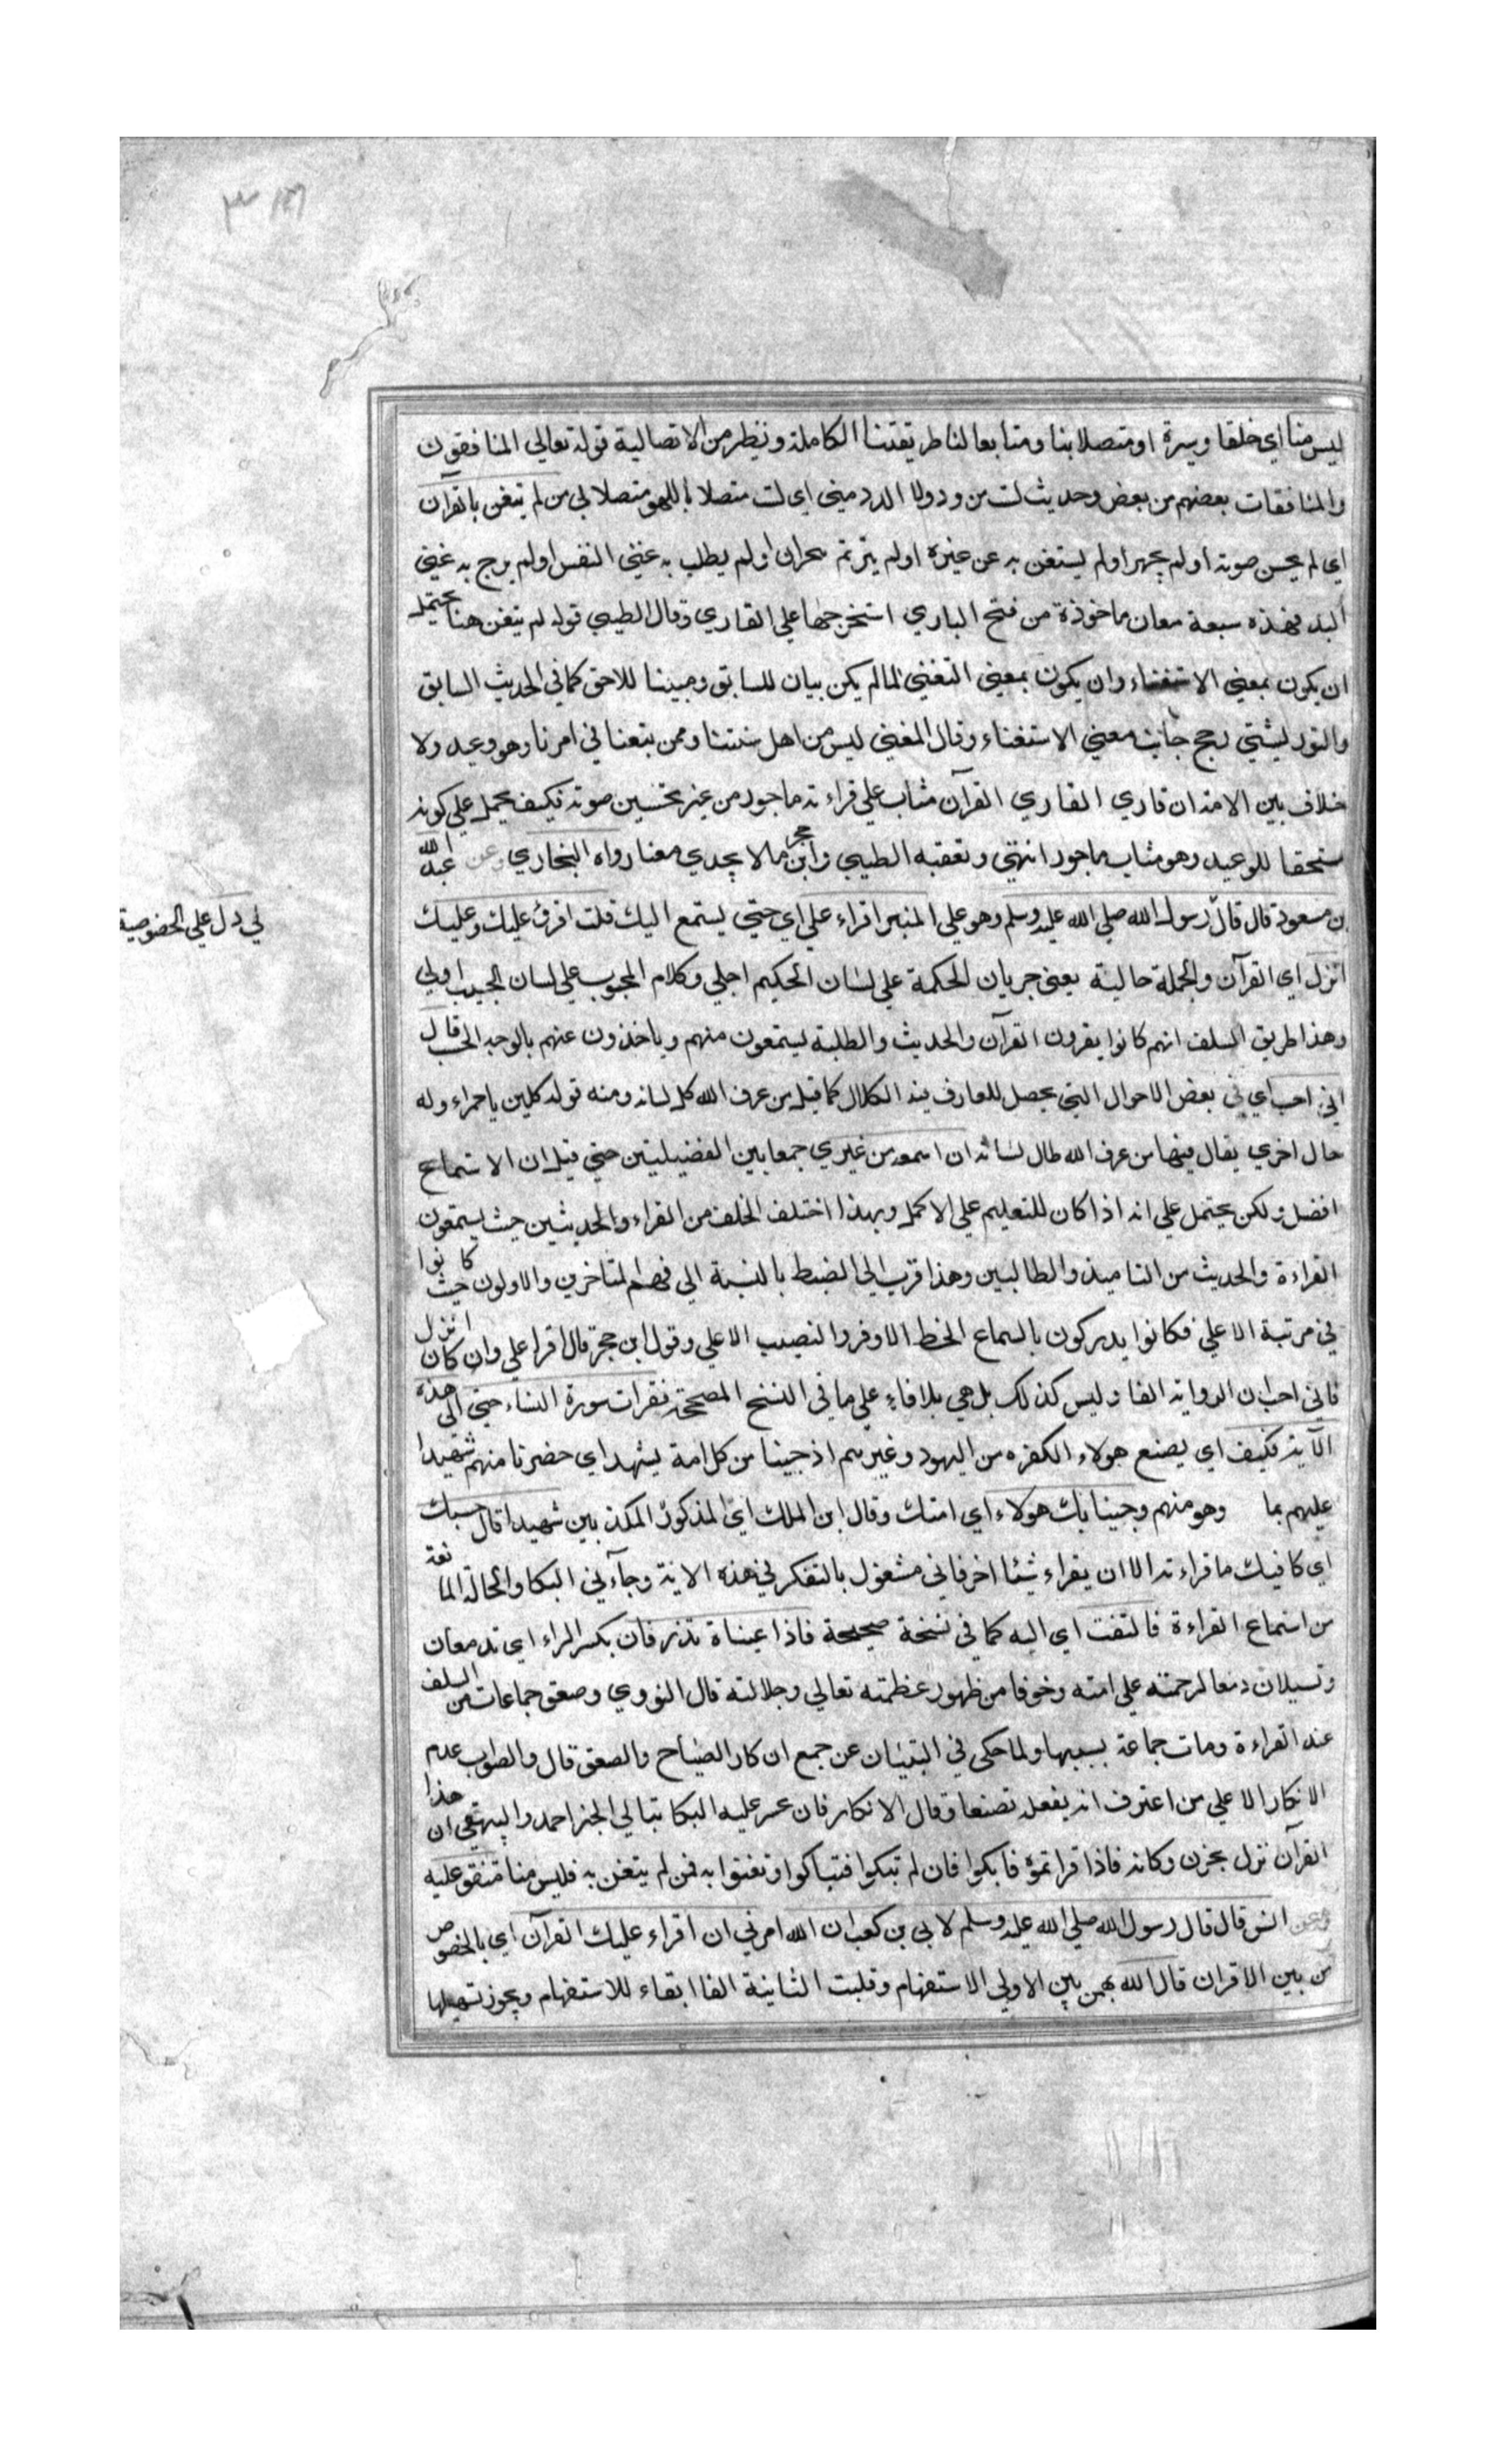 ليس منا اي خلقا وسيرة او متصلا بنا ومتابعا لنا طريقتنا الكاملة ونظير من الاتصالية قوله تعالي المنافقون
والمنافقات بعضهم من بعض وحديث لست من ودولا الدد مني اي لست متصلا باللهو متصلا بي من لم يتغن بالقرآن
اي لم يحسن صوته او لم يجهر او لم يستغن به عن غيره او لم يترنم او لم يطلب به غني النفس او لم يرج به غني
اليد فهذه سبعة معان ماخوذة من فتح الباري استخرجها علي القاري وقال الطيبي قوله لم يتغن هنا يحتمل
ان يكون بمعني الاستغناء وان يكون بمعني التغني لما لم يكن بيان للسابق ومبينا للاحق كما في الحديث السابق
والتوربشتي رجح جانب معني الاستغناء وقال المعني ليس من اهل سنتنا وممن يتبعنا في امرنا وهو وعيد ولا
خلاف بين الامة ان قاري القاري القرآن مثاب علي قراءته ماجور من غير تحسين صوته فكيف يحمل علي كونه
مستحقا للوعيد وهو مثاب ماجور انتهي وتعقبه الطيبي وابن حجر مالا يجدي معنا رواه البخاري وعن عبد الله
بن مسعود قال قال رسول الله صلي الله عليه وسلم وهو علي المنبر اقراء علي اي حتي يستمع اليك قلت اقرؤ عليك وعليك
انزل اي القرآن والجملة حالية يعني جريان الحكمة علي لسان الحكيم احلي وكلام المحبوب علي لسان الحبيب اولي
وهذا طريق السلف انهم كانوا يقرون القرآن والحديث والطلبة يستمعون منهم وياخذون عنهم بالوجه قال
اني احب اي في بعض الاحوال التي يحصل للعارف فيه الكلال كما قيل من عرف الله كل لسانه ومنه قوله كلمين يا حمراء وله
حال اخري يقال فيها من عرف الله طال لسانه ان اسمعه من غيري جمعا بين الفضيلتين حتي قيل ان الاستماع
افضل ولكن يحتمل علي انه اذا كان للتعليم علي الاكمل وبهذا اختلف الخلف من القراء والمحدثين حيث يستمعون
القراءة والحديث من التلاميذ والطالبين وهذا قريب الي الضبط بالنسبة الي فهم المتاخرين والاولون حيث كانوا
في مرتبة الاعلي فكانوا يدركون بالسماع الحظ الاوفر والنصيب الاعلي وقول ابن حجر قال اقرا علي وان كان انزل
فاني احب ان الرواية الفا وليس كذلك بل هي بلا فاء علي ما في النسخ المصححة فقرات سورة النساء حتي الي هذه
الآية فكيف اي يصنع هولاء الكفره من اليهود وغيرهم اذ جينا من كل امة بشهيد اي حضرنا منهم شهيدا
عليهم بما وهو منهم وجينا بك هولاء اي امتك وقال ابن الملك اي المذكور المكذبين شهيدا قال حسبك
اي كافيك ما قراءته الا ان يقراء شئا اخر فاني مشغول بالتفكر في هذه الاية وجآءني البكا والحالة المانعة
من استماع القراءة فالتفت اي اليه كما في نسخة صحيحة فاذا عيناة تذرفان بكسر الراء اي تدمعان
وتسيلان دمعا لرحمته علي امته وخوفا من ظهور عظمته تعالي وجلالته قال النووي وصعق جماعات من السلف
عند القراءة ومات جماعة بسببها ولما حكي في التبيان عن جمع انكار الصياح والصعق قال والصواب عدم
الانكار الا علي من اعترف انه يفعله تصنعا وقال الانكار فان عسر عليه البكا تباكي الخبر احمد والبيهقي ان هذا
القرآن نزل بحزن وكانه فاذا قراتموه فابكوا فان لم تبكوا فتباكوا وتغنوا به فمن لم يتغن به فليس منا متفق عليه
وعن انس قال قال رسول الله صلي الله عليه وسلم لابي بن كعب ان الله امرني ان اقراء عليك القرآن اي بالخصوص
من بين الاقران قال الله بهمزتين الاولي الاستفهام وقلبت الثانية الفا ابقاء للاستفهام ويجوز تسهيلها
لي دل علي الخصوصية